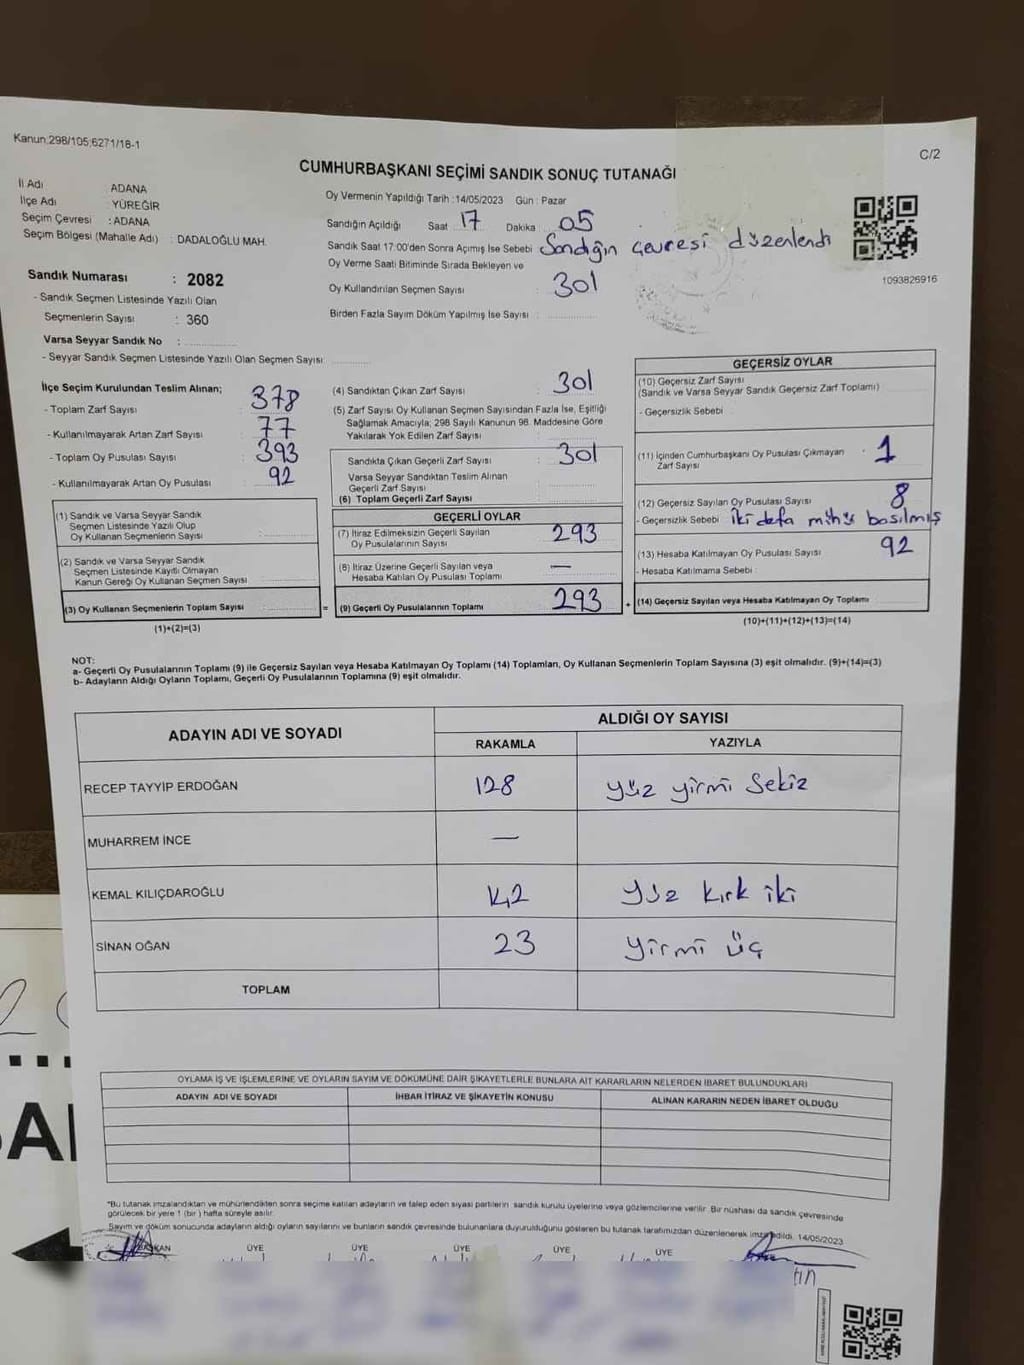 Kanun:298/105;6271/18-1
C/2
CUMHURBAŞKANI SEÇİMİ SANDIK SONUÇ TUTANAĞI
İl Adı ADANA
İlçe Adı : YÜREĞİR
Seçim Çevresi : ADANA
Seçim Bölgesi (Mahalle Adı) : DADALOĞLU MAH.
Sandık Numarası : 2082
- Sandık Seçmen Listesinde Yazılı Olan
Seçmenlerin Sayısı : 360
Varsa Seyyar Sandık No :
- Seyyar Sandık Seçmen Listesinde Yazılı Olan Seçmen Sayısı
Oy Vermenin Yapıldığı Tarih : 14/05/2023 Gün : Pazar
Sandığın Açıldığı Saat 17 Dakika 05
Sandık Saat 17:00'den Sonra Açımış İse Sebebi Sandığın çevresi düzenlendi
Oy Verme Saati Bitiminde Sırada Bekleyen ve
Oy Kullandırılan Seçmen Sayısı : 301
Birden Fazla Sayım Döküm Yapılmış İse Sayısı :
1093826916
İlçe Seçim Kurulundan Teslim Alınan;
- Toplam Zarf Sayısı : 378
- Kullanılmayarak Artan Zarf Sayısı : 77
- Toplam Oy Pusulası Sayısı : 393
- Kullanılmayarak Artan Oy Pusulası : 92
(1) Sandık ve Varsa Seyyar Sandık
Seçmen Listesinde Yazılı Olup
Oy Kullanan Seçmenlerin Sayısı :
(2) Sandık ve Varsa Seyyar Sandık
Seçmen Listesinde Kayıtlı Olmayan
Kanun Gereği Oy Kullanan Seçmen Sayısı
(3) Oy Kullanan Seçmenlerin Toplam Sayısı : =
(1)+(2)=(3)
(4) Sandıktan Çıkan Zarf Sayısı : 301
(5) Zarf Sayısı Oy Kullanan Seçmen Sayısından Fazla İse, Eşitliği
Sağlamak Amacıyla; 298 Sayılı Kanunun 98. Maddesine Göre
Yakılarak Yok Edilen Zarf Sayısı :
Sandıkta Çıkan Geçerli Zarf Sayısı : 301
Varsa Seyyar Sandıktan Teslim Alınan
Geçerli Zarf Sayısı :
(6) Toplam Geçerli Zarf Sayısı
GEÇERLİ OYLAR
(7) İtiraz Edilmeksizin Geçerli Sayılan
Oy Pusulalarının Sayısı : 293
(8) İtiraz Üzerine Geçerli Sayılan veya
Hesaba Katılan Oy Pusulası Toplamı : —
(9) Geçerli Oy Pusulalarının Toplamı 293 +
GEÇERSİZ OYLAR
(10) Geçersiz Zarf Sayısı
(Sandık ve Varsa Seyyar Sandık Geçersiz Zarf Toplamı)
- Geçersizlik Sebebi
(11) İçinden Cumhurbaşkanı Oy Pusulası Çıkmayan : 1
Zarf Sayısı
(12) Geçersiz Sayılan Oy Pusulası Sayısı 8
- Geçersizlik Sebebi İki defa mühür basılmış
(13) Hesaba Katılmayan Oy Pusulası Sayısı 92
- Hesaba Katılmama Sebebi :
(14) Geçersiz Sayılan veya Hesaba Katılmayan Oy Toplamı
(10)+(11)+(12)+(13)=(14)
NOT:
a- Geçerli Oy Pusulalarının Toplamı (9) ile Geçersiz Sayılan veya Hesaba Katılmayan Oy Toplamı (14) Toplamları, Oy Kullanan Seçmenlerin Toplam Sayısına (3) eşit olmalıdır. (9)+(14)=(3)
b- Adayların Aldığı Oyların Toplamı, Geçerli Oy Pusulalarının Toplamına (9) eşit olmalıdır.
ADAYIN ADI VE SOYADI
ALDIĞI OY SAYISI
RAKAMLA YAZIYLA
RECEP TAYYİP ERDOĞAN 128 yüz yirmi Sekiz
MUHARREM İNCE —
KEMAL KILIÇDAROĞLU 142 yüz kırk iki
SİNAN OĞAN 23 yirmi üç
TOPLAM
OYLAMA İŞ VE İŞLEMLERİNE VE OYLARIN SAYIM VE DÖKÜMÜNE DAİR ŞİKAYETLERLE BUNLARA AİT KARARLARIN NELERDEN İBARET BULUNDUKLARI
ADAYIN ADI VE SOYADI İHBAR İTİRAZ VE ŞİKAYETİN KONUSU ALINAN KARARIN NEDEN İBARET OLDUĞU
*Bu tutanak imzalandıktan ve mühürlendikten sonra seçime katılan adayların ve talep eden siyasi partilerin sandık kurulu üyelerine veya gözlemcilerine verilir. Bir nüshası da sandık çevresinde
görülecek bir yere 1 (bir) hafta süreyle asılır.
Sayım ve döküm sonucunda adayların aldığı oyların sayılarını ve bunların sandık çevresinde bulunanlara duyurulduğunu gösteren bu tutanak tarafımızdan düzenlenerek imza edildi. 14/05/2023
BAŞKAN ÜYE ÜYE ÜYE ÜYE ÜYE